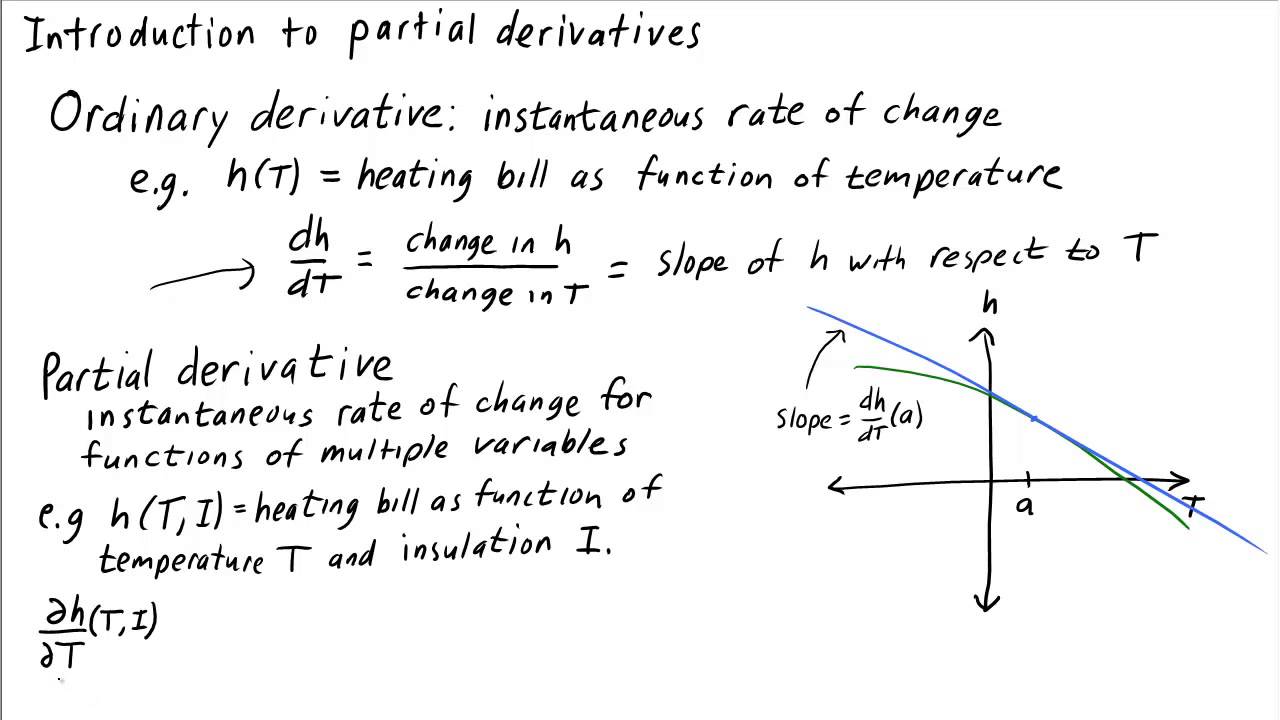 Introduction to partial derivatives
Ordinary derivative: instantaneous rate of change
e.g. h(T) = heating bill as function of temperature
dh/dT = change in h/change in T = slope of h with respect to T
h
Partial derivative
instantaneous rate of change for
functions of multiple variables
slope = dh/dT (a)
a
T
e.g h(T, I) = heating bill as function of
temperature T and insulation I.
∂h/∂T (T, I)